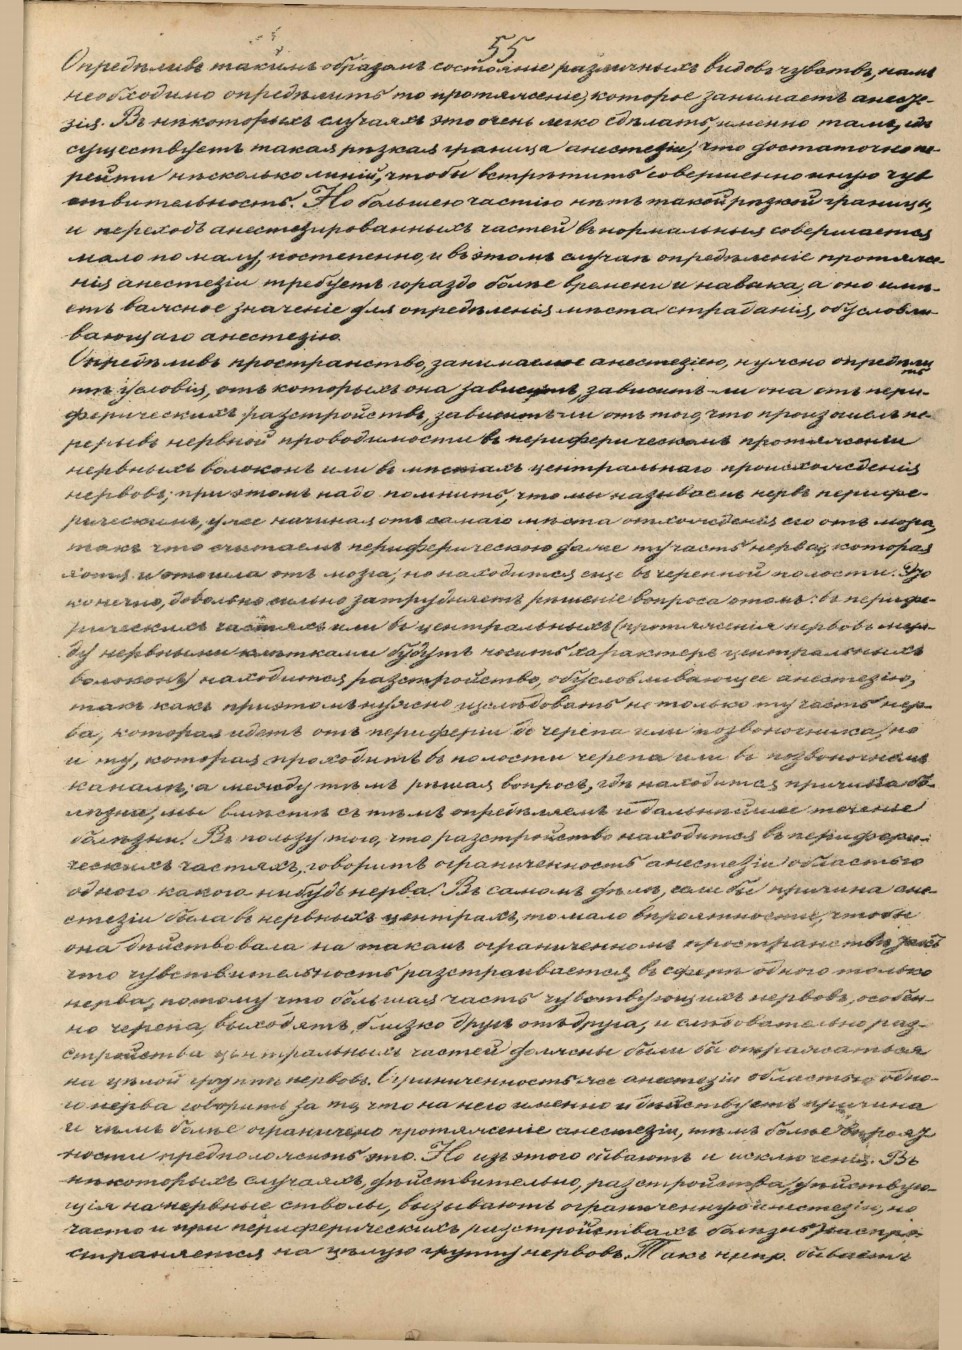 55
Опредѣливъ такимъ образомъ состоянiе различныхъ видовъ чувствъ, намъ
необходимо опредѣлить то протяженiе, которое занимаетъ анесте-
зiя. Въ нѣкоторыхъ случаяхъ это очень легко сдѣлать, именно тамъ, гдѣ
существуетъ такая рѣзкая граница анестезiи, что достаточно пе-
рейти нѣсколько линiй, чтобы встрѣтить совершенно иную чув
ствительность. Но большею частiю нѣтъ такой рѣзкой границы,
и переходъ анестезированныхъ частей въ нормальныя совершается
мало по малу, постепенно, и въ этомъ случаѣ опредѣленiе протяже-
нiя анестезiи требуетъ гораздо болѣе времени и навыка, а оно имѣ-
етъ важное значенiе для опредѣленiя мѣста страданiя, обусловли-
вающаго анестезiю.
Опредѣливъ пространство, занимаемое анестезiею, нужно опредѣли
ть условiя, отъ которыхъ она зависитъ, зависитъ-ли она отъ пери-
ферическихъ разстройствъ, зависитъ-ли отъ того, что произошелъ пе-
рерывъ нервной проводимости въ периферическомъ протяженiи
нервныхъ волоконъ или въ мѣстахъ центральнаго происхожденiя
нервовъ; при этомъ надо помнить, что мы называемъ нервъ перифе-
рическимъ, уже начиная отъ самаго мѣста отхожденiя его отъ мозга,
такъ что считаемъ периферическою даже ту часть нерва, которая
хотя и отошла отъ мозга, но находится еще въ черепной полости. Это
конечно, довольно сильно затрудняетъ рѣшенiе вопроса о томъ: въ перифе-
рическихъ частяхъ или въ центральныхъ (протяженiя нервовъ меж-
ду нервными клѣтками будутъ носить характеръ центральныхъ
волоконъ) находится разстройство, обусловливающее анестезiю,
такъ какъ при этомъ нужно изслѣдовать не только ту часть нер-
ва, которая идетъ отъ периферiи до черепа или позвоночника, но
и ту, которая проходитъ въ полости черепа или въ позвоночномъ
каналѣ; а между тѣмъ рѣшая вопросъ, гдѣ находится причина бо-
лѣзни, мы вмѣстѣ съ тѣмъ опредѣляемъ и дальнѣйшее теченiе
болѣзни. Въ пользу того, что разстройство находится въ перифери-
ческихъ частяхъ, говоритъ ограниченность анестезiи областью
одного какого нибудь нерва. Въ самомъ дѣлѣ, если бы причина ане-
стезiи была въ нервныхъ центрахъ, то мало вѣроятности, чтобы
она дѣйствовала на такомъ ограниченномъ пространствѣ
что чувствительность разстраивается въ сферѣ одного только
нерва, потому что большая часть чувствующихъ нервовъ, особен-
но черепа, выходятъ близко другъ отъ друга, и слѣдовательно раз-
стройства центральныхъ частей должны были бы отражаться
на цѣлой группѣ нервовъ. Ограниченность же анестезiи областью одно-
го нерва говоритъ за то, что на него именно и дѣйствуетъ причина
и чѣмъ болѣе ограничено протяженiе анестезiи, тѣмъ болѣе вѣроят
ности предположить это. Но изъ этого бываютъ и исключенiя. Въ
нѣкоторыхъ случаяхъ, дѣйствительно, разстройства, дѣйствую-
щiя на нервные стволы, вызываютъ ограниченную анестезiю, но
часто и при периферическихъ разстройствахъ болѣзнь распро-
страняется на цѣлую группу нервовъ. Такъ напр. бываетъ